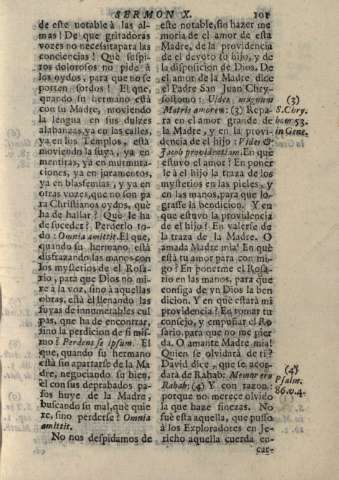 SERMON X. 101
de este notable à las al-
mas! De que gritadoras
vozes no necessitapara las
conciencias! Que suspi-
ros dolorosos no pide à
los oydos, para que no se
porten sordos! El que,
quando su hermano està
con su Madre, moviendo
la lengua en sus dulzes
alabanzas, ya en las calles,
ya en los Templos, està
moviendo la suya, ya en
mentiras, ya en murmura-
ciones, ya en juramentos,
ya en blasfemias, y ya en
otras vozes, que no son pa
ra Christianos oydos, què
ha de hallar? Què le ha
de suceder? Perderlo to-
do: Omnia amittit. El que,
quando su hermano està
disfrazando las manos con
los mysterios de el Rosa-
rio, para que Dios no mi-
re à la voz, sino à aquellas
obras, està èl llenando las
suyas de innumerables cul
pas, que ha de encontrar,
sino la perdicion de sì mis-
mo? Perdens se ipsum. El
que, quando su hermano
està sin apartarse de la Ma
dre, negociando su bien,
èl con sus depravados pa-
sos huye de la Madre,
buscando su mal, què quie
re, sino perderse? Omnia
amittit.
No nos despidamos de
este notable, sin hazer me
moria de el amor de esta
Madre, de la providencia
de el devoto su hijo, y de
la disposicion de Dios. De
el amor de la Madre dice
el Padre San Juan Chry-
sostomo: Vides magnum
Matris amorem: (3) Repa-
ra en el amor grande de
la Madre, y en la provi-
dencia de el hijo: Vides &
Jacob providentiam. En què
estuvo el amor? En poner
le à el hijo la traza de los
mysterios en las pieles, y
en las manos, para que lo-
grasse la bendicion. Y en
que estuvo la providencia
de el hijo? En valerse de
la traza de la Madre. O
amada Madre mia! En què
està tu amor para con mi-
go? En ponerme el Rosa-
rio en las manos, para que
consiga de vn Dios la ben
dicion. Y en que estarà mi
providencia? En tomar tu
consejo, y empuñar el Ro
sario, para que no me pier
da. O amante Madre mia!
Quien se olvidarà de ti?
David dice, que se acor-
darà de Rahab: Memor ero
Rahab: (4) Y con razon:
porque no merece olvido
la que haze finezas. No
fuè esta aquella, que puso
à los Exploradores en Je-
richo aquella cuerda en-
car-
(3)
S. Chry.
hom. 53.
in Gene.
(4)
Psalm.
86. v. 4.